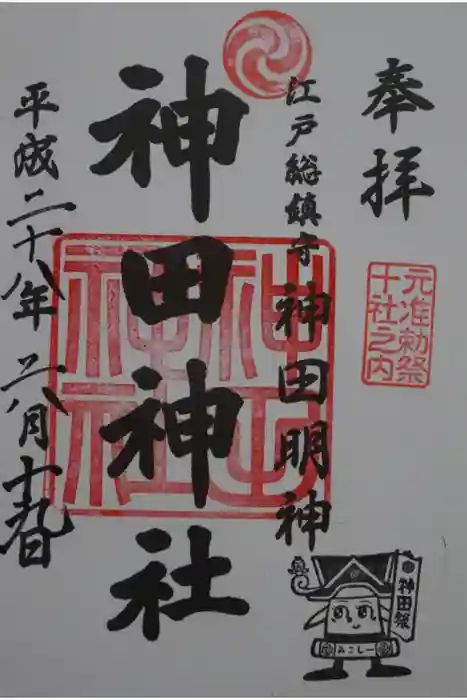 奉拝
元准勅祭
十社之内
江戸総鎮守 神田明神
神田神社
神田神社
平成二十八年二八月十九日
神田祭
みこしー